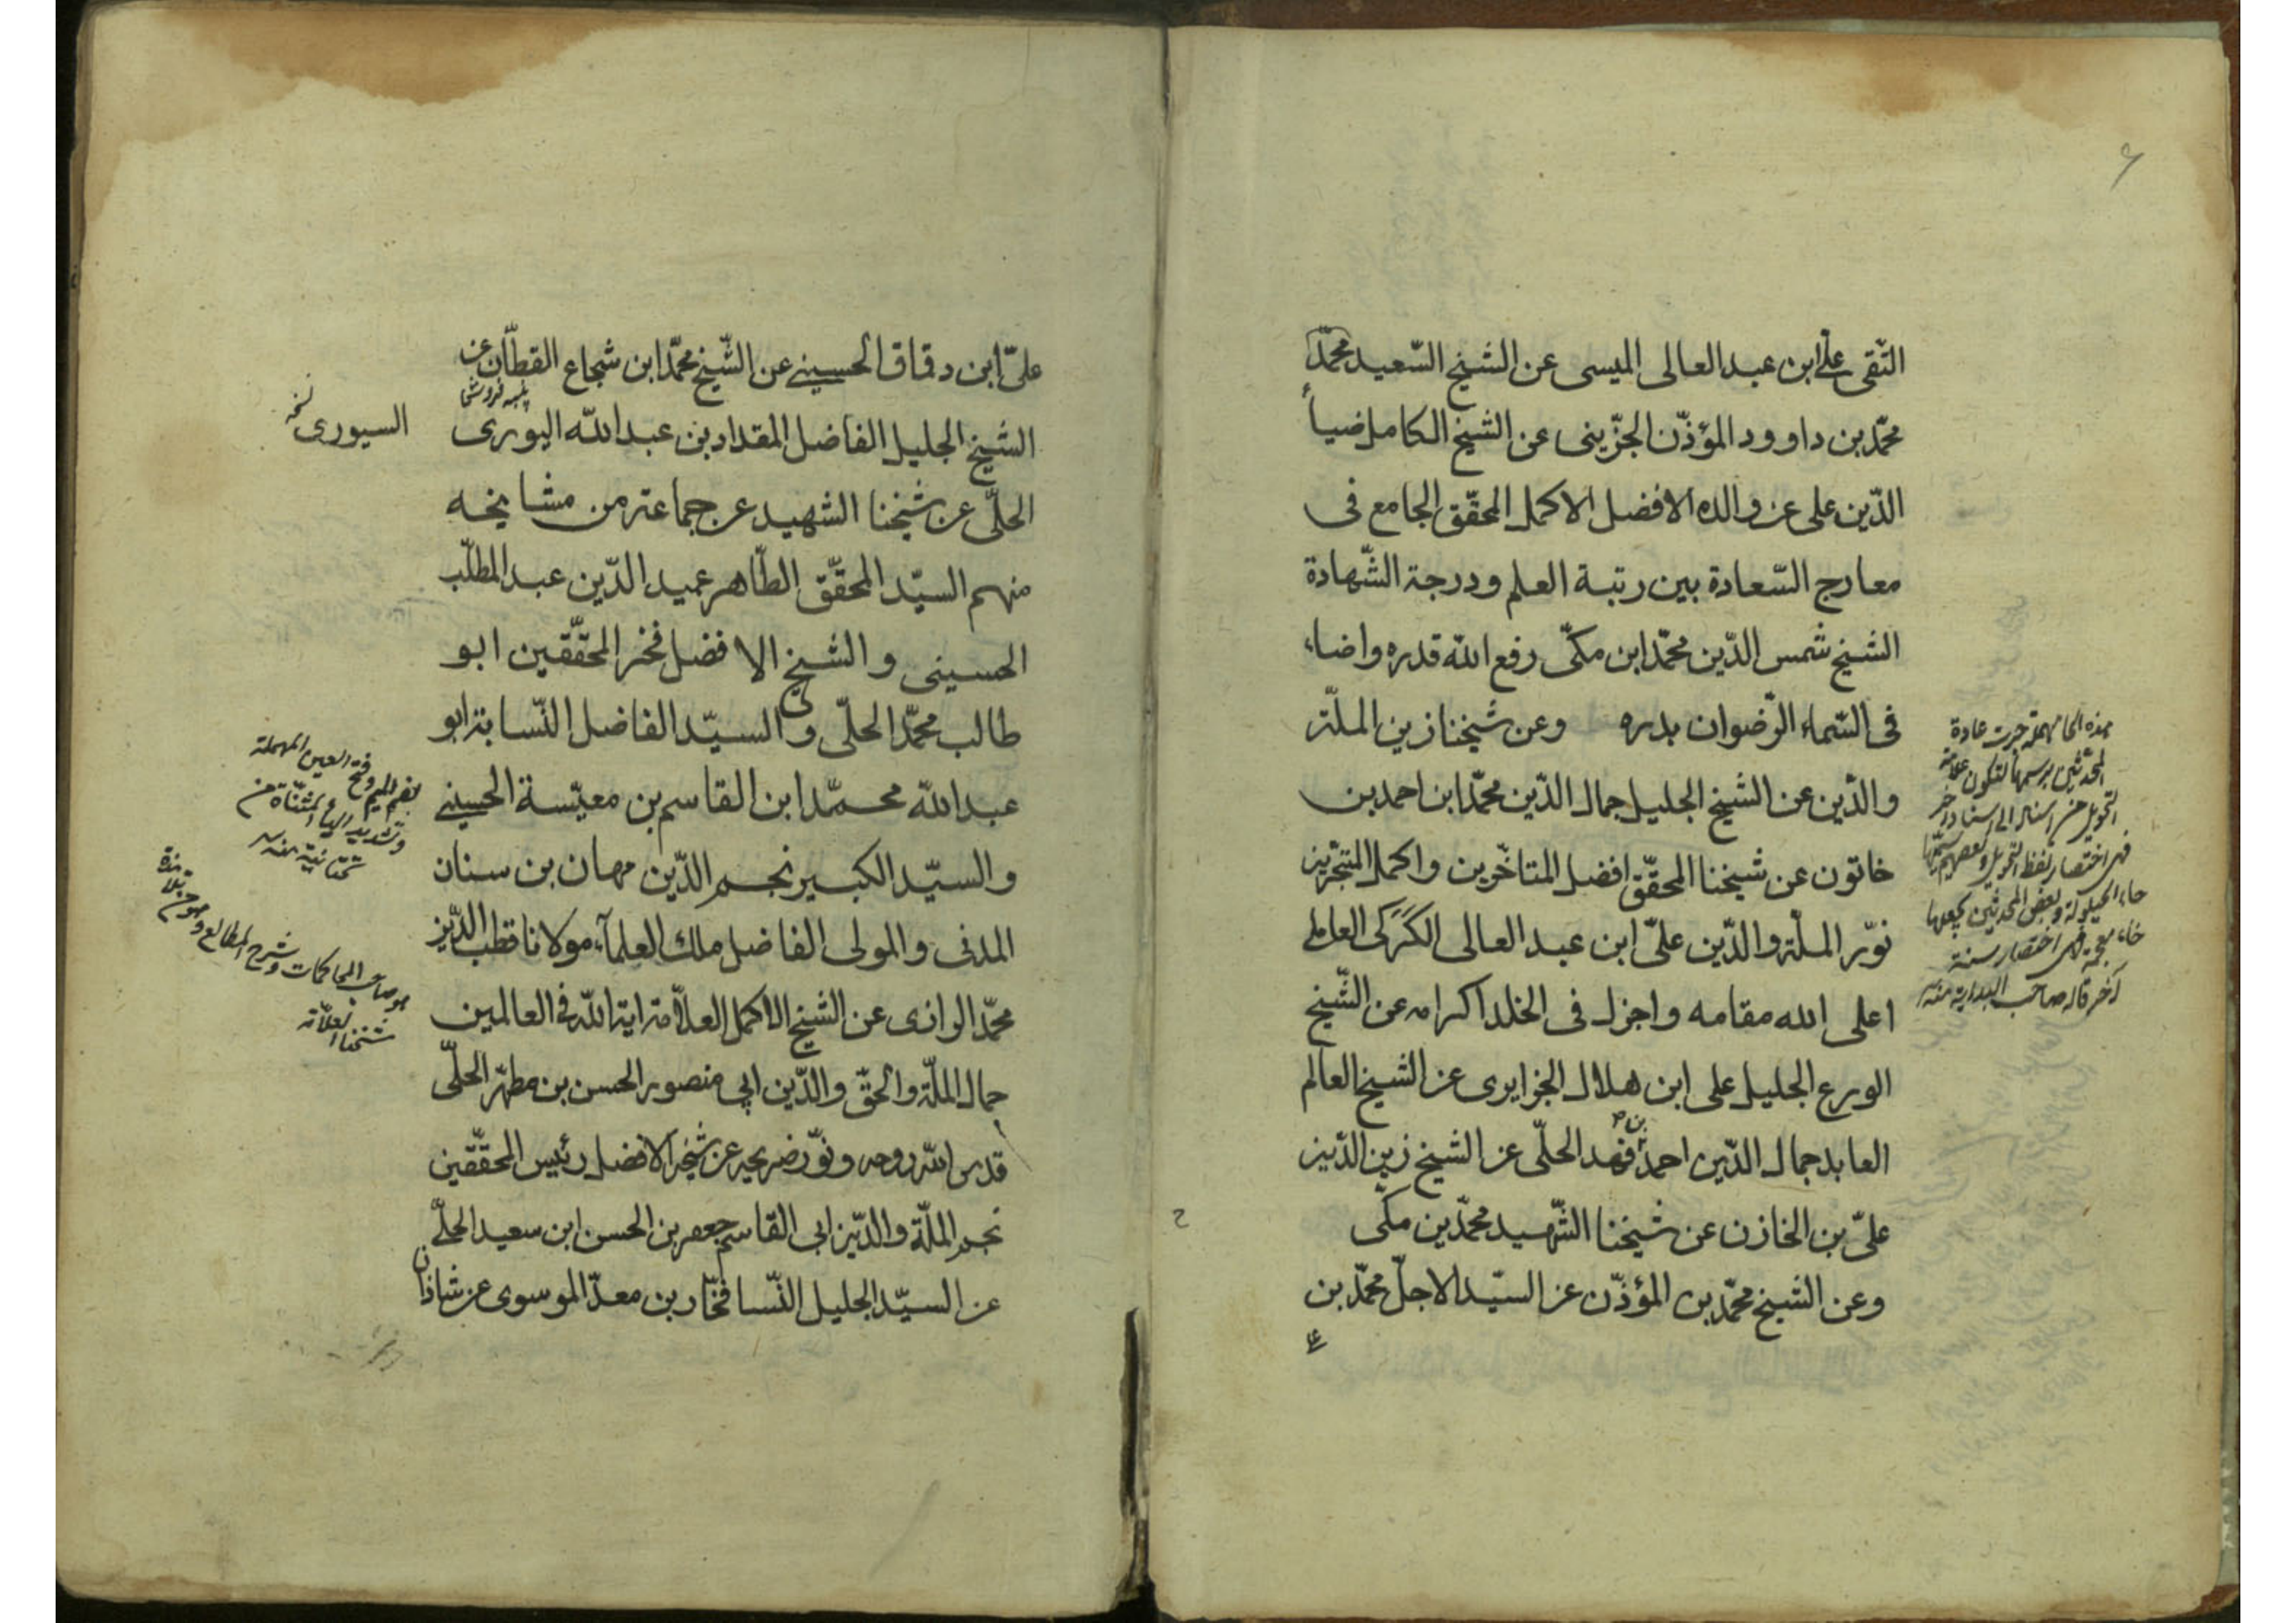 التّقى علي ابن عبد العالى الميسى عن الشيخ السّعيد محمّد
محمّد بن داوود المؤذّن الجزّينى عن الشيخ الكامل ضياء
الدّين على عن والده الافضل الاكمل المحقّق الجامع فى
معارج السّعادة بين رتبة العلم ودرجة الشّهادة
الشيخ شمس الدّين محمّد ابن مكّى رفع الله قدره واضاء
فى السّماء الرّضوان بدره وعن شيخنا زين الملّة
والدّين عن الشيخ الجليل جمال الدّين محمّد ابن احمد بن
خاتون عن شيخنا المحقّق افضل المتاخّرين واكمل المتبحّرين
نوّر الملّة والدّين علىّ ابن عبد العالى الكَرَكى العاملي
اعلى الله مقامه واجزل فى الخلد اكرامه عن الشّيخ
الورع الجليل على ابن هلال الجزايرى عن الشيخ العالم
العابد جمال الدّين احمد بن فهد الحلّى عن الشيخ زين الدّين
علىّ بن الخازن عن شيخنا الشّهيد محمّد بن مكّى
وعن الشيخ محمّد بن المؤذّن عن السيّد الاجلّ محمّد بن
علي
هذه الحا مهملة جرت عادة
المحدثين برسمها لتكون علامة
التحويل من اسناد الى اسناد آخر
فهى اختصار لفظ التحويل وبعضهم يسمّيها
حاء الحيلولة وبعض المحدثين يجعلها
خاء معجمة فهى اختصار سنة
آخر قاله صاحب البداية منه
ح
علىّ ابن دقاق الحسيني عن الشّيخ محمّد ابن شجاع القطّان عن
الشيخ الجليل الفاضل المقداد بن عبد الله اليورى
السيورى نسخه
الحلّى عن شيخنا الشهيد عن جماعة من مشايخه
منهم السيّد المحقّق الطّاهر عميد الدّين عبد المطلّب
الحسينى والشيخ الافضل فخر المحقّقين ابو
طالب محمّد الحلّى والسيّد الفاضل النّسابة ابو
عبد الله محمّد ابن القاسم بن معيّسة الحسيني
والسيّد الكبير نجم الدّين مهان بن سنان
المدنى والمولى الفاضل ملك العلمآء مولانا قطب الدّين
محمّد الرازى عن الشيخ الاكمل العلاّمة اية الله فى العالمين
جمال الملّة والحقّ والدّين ابى منصور الحسن بن مطهّر الحلّى
قدس الله روحه ونوّر ضريحه عن شيخه الافضل رئيس المحقّقين
نجم الملّة والدّين ابى القاسم جعفر بن الحسن ابن سعيد الحلّي
عن السيّد الجليل النّسا فخّار بن معدّ الموسوى عن شاذان
بضم الميم وفتح العين المهملة
وتشديد الياء المثنّاة من
تحتانية منه
هو صاحب المحاكمات وشرح المطالع وهو من تلامذة
شيخنا العلامة